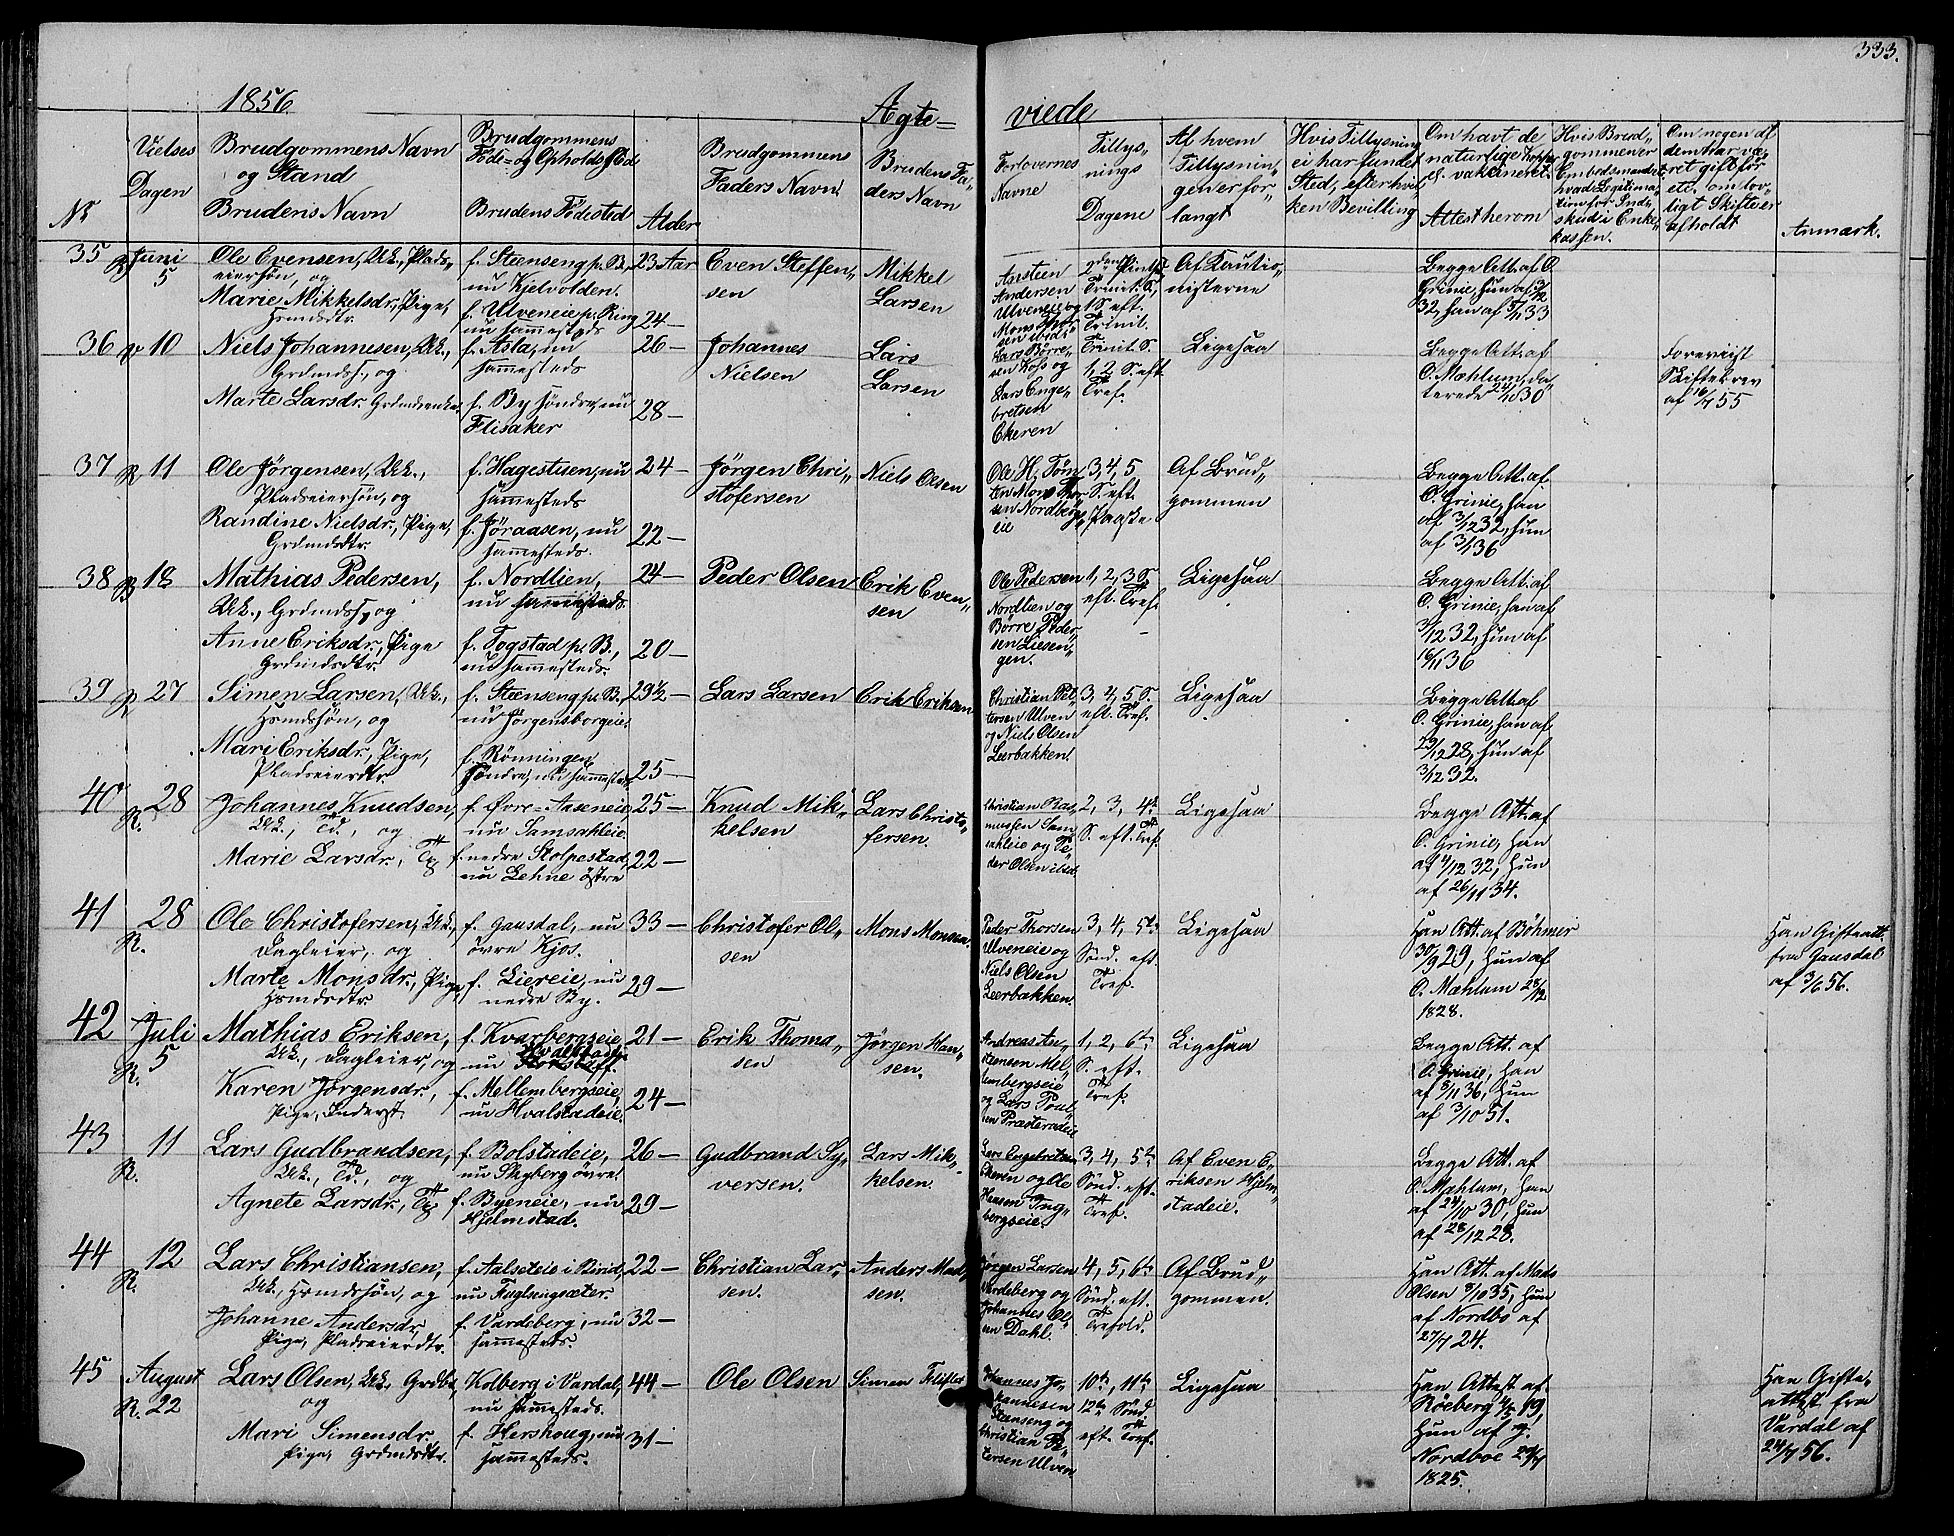 333.
1856.
Ægte= viede
No
Vielses Dagen
Brudgommens Navn og Stand
Brudens Navn
Brudgommens Føde= og Opholdssted
Brudens Fødested
Alder
Brudgommens Faders Navn
Brudens Faders Navn
Forlovernes Navne
Tillysnings Dagene
Af hvem Tillysningen er forlangt
Hvis Tillysning ei har fundet Sted, efter hvilken Bevilling
Om havt de naturlige Kopper el. vakcineret.
Attest herom
Hvis Brudgommen er Embedsmand etc. hvad Legitimation for Indskud i Enkekassen.
Om nogen af dem har været gift før etc. om lovligt Skifte er afholdt
Anmærk.
35 Juni 5
Ole Evensen, Uk., Pladseiersøn, og
Marie Mikkelsdr., Pige, Hsmdsdtr.
f. Steenseng p. B., nu Kjelvolden.
f. Ulveneie p. Ring nu sammesteds
23 Aar
24 —
Even Steffensen
Mikkel Larsen
Andersen Ulveneie og
Trinit. S., 1 S. eft. Trinit.
Af Kautionisterne
Begge Att. af O. Grinie, hun af
36 10
Niels Johannesen, Uk., Grdmds., og
Marte Larsdr. Grdmdsenke
f. Asla, nu sammesteds
f. By søndre, nu Flisaker
26 —
28 —
Johannes Nielsen
Lars Larsen
Lars Børresen Hofs og Lars Engebretsen Ekeren
Trinit. S. 1, 2 S. eft. Tref.
Ligesaa
Begge Att. af O. Mæhlum, daterede 24/10 30
Foreviist Skiftebrev af 16/7 55
37 R 11
Ole Jörgensen, Uk., Pladseiersøn, og
Randine Nielsdr., Pige, Grdmdsdtr.
f. Hagestuen, nu sammesteds
f. Jöraasen, nu sammesteds.
24 —
22 —
Jörgen Christofersen
Niels Olsen
3, 4, 5 S. eft. Paaske
Af Brudgommen
Begge Att. af O. Grinie, han af 3/12 32, hun af 3/1 36
38 R 18
Mathias Pedersen, Uk., Grdmdss., og
Anne Eriksdr., Pige Grdmdsdtr.
f. Nordlien, nu sammesteds.
f. Togstad p. B., nu sammesteds.
24 —
20 —
Peder Olsen
Erik Evensen
Ole Pedersen Nordlien og Børre Pedersen Liesengen.
1, 2, 3 S. eft. Tref.
Ligesaa
Begge Att. af O. Grinie, han af 3/12 32, hun af 16/11 36
39 R 27
Simen Larsen, Uk., Hsmdssøn, og
Mari Eriksdr., Pige, Pladseierdtr
f. Steenseng p. B., nu Jörgensborgeie.
f. Rönningen søndre, nu sammesteds
29½ —
25 —
Lars Larsen
Erik Eriksen
Christian Pettersen Ulven og Niels Olsen Leerbakken.
3, 4, 5 S. eft. Tref.
Ligesaa
Begge Att. af O. Grinie, han af 29/12 28, hun af 3/12 32.
40 R. 28
Johannes Knudsen, Uk., Td., og
Marie Larsdr., Tp
f. Øvre=Aaseneie, nu Samsahleie.
f. nedre Stolpestad, nu Lehne østre
25 —
22 —
Knud Mikkelsen
Lars Christofersen.
Christian Rasmussen Samsahleie og Peder Olsen ibid.
2, 3, 4de S. eft. Tref.
Ligesaa
Begge Att. af O. Grinie, han af 4/12 32, hun af 26/11 34.
41 R. 28
Ole Christofersen, Uk., Dagleier, og
Marte Monsdr., Pige, Hsmdsdtr
f. Gausdal, nu övre Kjos.
f. Liereie, nu nedre By.
33 —
29 —
Christofer Olsen
Mons Monsen.
Peder Thorsen Ulveneie og Niels Olsen Leerbakken.
3, 4, 5te Sönd. eft. Tref.
Ligesaa
Han Att. af Böhmer 30/9 29, hun af O. Mæhlum 28/12 1828.
Han Gifteatt. fra Gausdal af 3/6 56.
42 Juli R. 5
Mathias Eriksen, Uk., Dagleier, og
Karen Jørgensdr., Pige, Inderst
f. Kvarbergseie, nu
f. Mellembergseie, nu Hvalstadeie.
21 —
24 —
Erik Thomasen
Jørgen Hansen.
Andreas Andersen Mellembergseie og Lars Poulsen Præsteradeie
1, 2, 6te S. eft. Tref.
Ligesaa
Begge Att. af O. Grinie, han af 8/11 36, hun af 3/10 51.
43 R. 11
Lars Gudbrandsen, Uk., Td., og
Agnete Larsdr., Tp
f. Bolstadeie, nu Skyberg övre.
f. Byeneie, nu Hjelmstad.
26 —
29 —
Gudbrand Syversen.
Lars Mikkelsen.
Lars Engebretsen Ekeren og Ole Hansen Ringbergseie.
3, 4, 5te Sönd. eft. Tref.
Af Even Eriksen Hjelmstadeie.
Begge Att. af O. Mæhlum, han af 24/10 30, hun af 28/12 28.
44 R. 12
Lars Christiansen, Uk., Hsmdssøn, og
Johanne Andersdr., Pige, Pladseierdtr.
f. Aalseteie i Birid, nu Fuglsengsæter.
f. Vardeberg, nu sammesteds.
22 —
32 —
Christian Larsen.
Anders Madsen.
Jørgen Larsen Vardeberg og Johannes Olsen Dahl.
4, 5, 6te Sönd. eft. Trefold.
Af Brudgommen.
Han Att. af Mads Olsen 8/10 35, hun af Nordbo af 27/7 24.
45 August R. 22
Lars Olsen, Uk., Grdbr., og
Mari Simensdr., Pige, Grdmdsdtr.
Kolberg i Vardal, nu sammesteds.
f. Hershoug, nu sammesteds.
44 —
31 —
Ole Olsen
Simen
Johannes Johannesen Steenseng og Christian Pettersen Ulven
10de, 11te, 12te Sönd. eft. Tref.
Ligesaa
Han Attest af Röeberg 19, Hun af Nordboe 1825.
Han Gifteattest fra Vardal af 24/7 56.